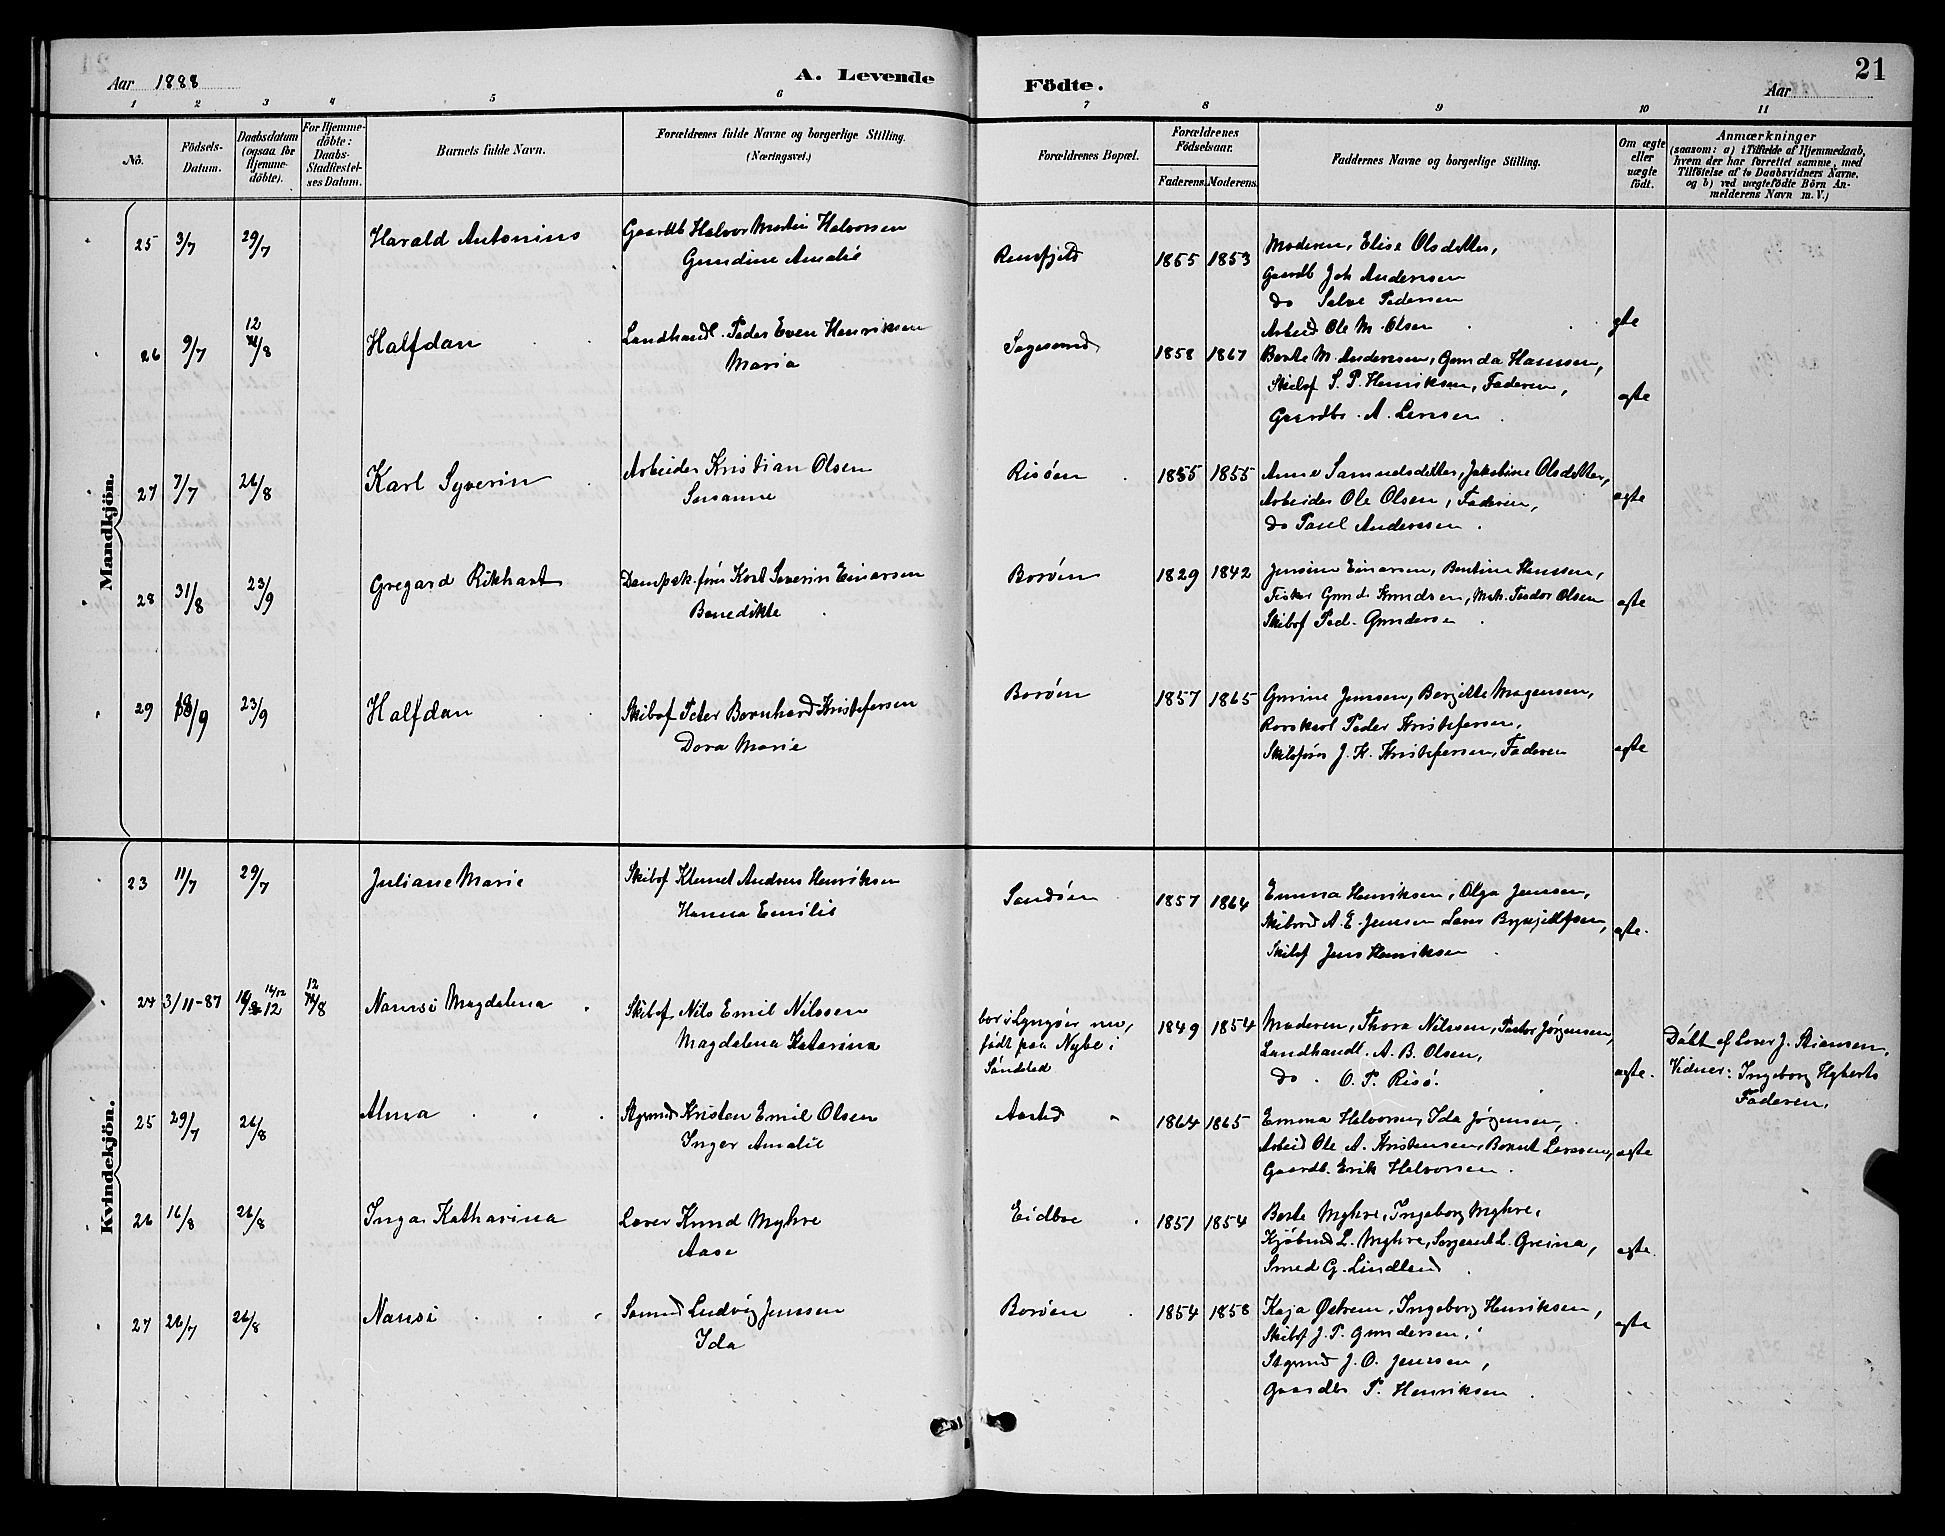 Aar 1888 A. Levende Födte. Aar 21
1 2 3 4 5 6 7 8 9 10 11
No. Födsels-Datum. Daabsdatum (ogsaa for Hjemmedöbte). For Hjemmedöbte: Daabs-Stadfæstelses Datum. Barnets fulde Navn. Forældrenes fulde Navne og borgerlige Stilling. (Næringsvei.) Forældrenes Bopæl. Forældrenes Födselsaar. Faderens. Moderens. Faddernes Navne og borgerlige Stilling. Om ægte eller uægte födt. Anmærkninger (saasom: a) i Tilfælde af Hjemmedaab, hvem der har forrettet samme, med Tilföielse af to Daabsvidners Navne. og b) ved uægtefödte Börn Anmelderens Navn m. V.)
Mandkjön.
25 3/7 29/7 Harald Antonius Gaardb Halvor Martin Halvorsen 1855 1853 Moderen, Elise Olsdatter,
Gundine Amalie
Gaardb Joh Andersen
do Salve Pedersen
Arbeid Ole M. Olsen ægte
26 9/7 12/8 Halfdan Landhandl. Peder Even Henriksen Sagesund 1858 1867 Berte M. Andersen, Gunda Hansen,
Maria
Skibsf S. P. Henriksen, Faderen,
Gaardbr. A. Larsen ægte
27 7/7 26/8 Karl Syverin Arbeider Kristian Olsen Risöen 1855 1855 Anne Samuelsdatter, Jakobine Olsdatter,
Susanne
Arbeider Ole Olsen, Faderen, ægte
do Paul Andersen.
28 31/8 23/9 Gregard Rikhart Dampsk.förer Karl Severin Einarsen Boröen 1829 1842 Jensine Einarsen, Bentine Hanssen,
Benedikte
Fisker Gund Knudsen, Mat. Teodor Olsen ægte
Skibsf Ped. Gundersen
29 18/9 23/9 Halfdan Skibsf Peter Bernhard Kristofersen Boröen 1857 1865 Gurine Jensen, Bergitte Mogensen,
Dora Marie
Rorskarl Peder Kristofersen,
Skibsförer J. K. Kristofersen, Faderen ægte
Kvindekjön.
23 11/7 29/7 Juliane Marie Skibsf Klemet Andreas Henriksen Sandöen 1857 1864 Emma Henriksen, Olga Jensen,
Hanna Emilie
A. E. Jensen ægte.
Skibsf Jens Henriksen
24 3/11-87 12/8 Nansi Magdalena Skibsf Nils Emil Nilssen bor i Lyngöer nu, 1849 1854 Moderen, Thora Nilssen, Pastor Jörgensen,
Magdalena Katarina födt paa Nybo i
Söndeled
Landhandl. A. B. Olsen,
do. O. P. Risö. ægte.
Döbt af J. Stiansen.
Vidner: Ingeborg
Faderen.
25 29/7 26/8 Alma Styrmd Kristen Emil Olsen 1864 1865 Emma Halvorsen, Ida Jörgensen,
Inger Amalie
Arbeid Ole A. Kristensen, Bernt Larssen, ægte
Gaardb. Erik Halvorsen.
26 16/8 26/8 Inga Katharina Lærer Knud Myhre Eidbo 1851 1854 Berte Myhre, Ingeborg Myhre,
Aase
Kjöbmd L. Myhre, Sergeant L. Greina, ægte.
Smed G. Lindland
27 26/7 26/8 Nansi Sömd Ludvig Jenssen Boröen 1854 1858 Kaja Östrem, Ingeborg Henriksen,
Ida
Skibsf J. P. Gundersen, ægte
Styrmd J. O. Jenssen,
Gaardbr P. Henriksen